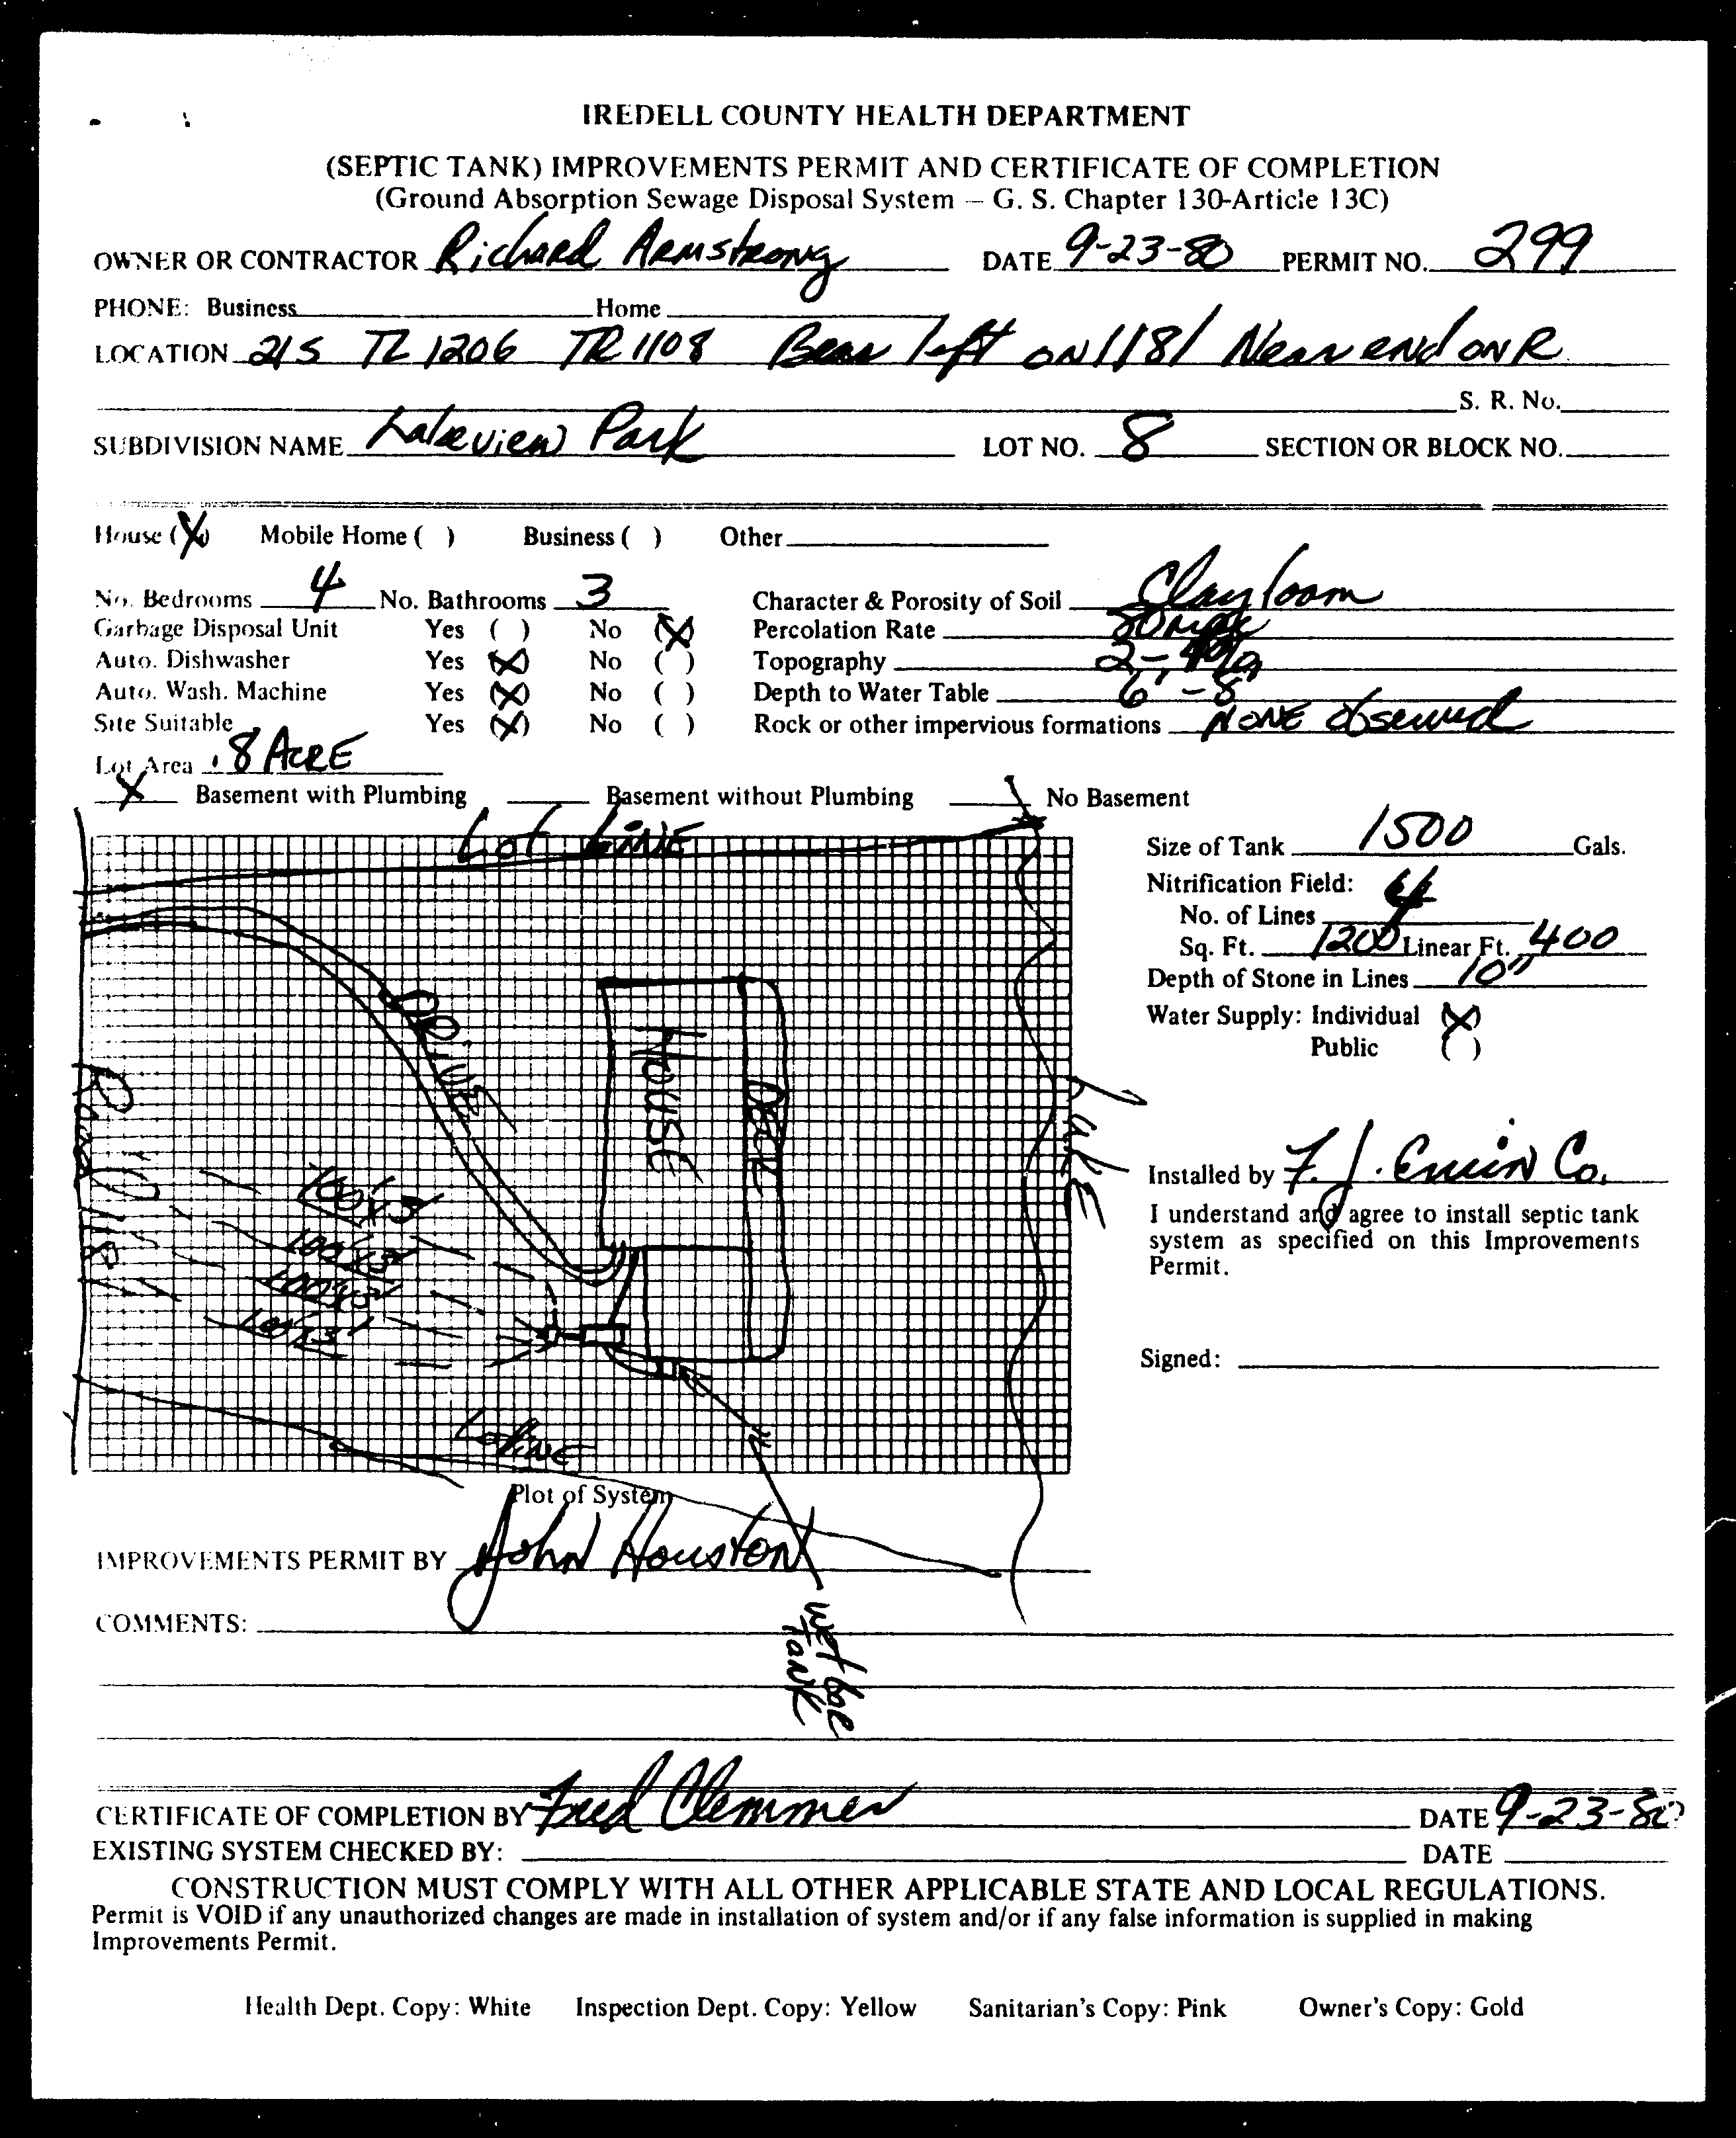 IREDELL COUNTY HEALTH DEPARTMENT
(SEPTIC TANK) IMPROVEMENTS PERMIT AND CERTIFICATE OF COMPLETION
(Ground Absorption Sewage Disposal System — G. S. Chapter 130-Article 13C)
OWNER OR CONTRACTOR Richard Armstrong DATE 9-23-80 PERMIT NO. 299
PHONE: Business Home
LOCATION 21S TL 1206 TR 1108 Bear left on 1181 Near end on R
S. R. No.
SUBDIVISION NAME Lakeview Park LOT NO. 8 SECTION OR BLOCK NO.
House (X) Mobile Home ( ) Business ( ) Other
No. Bedrooms 4 No. Bathrooms 3 Character & Porosity of Soil Clay loam
Garbage Disposal Unit Yes ( ) No (X) Percolation Rate
Auto. Dishwasher Yes (X) No ( ) Topography 2-
Auto. Wash. Machine Yes (X) No ( ) Depth to Water Table 6'-8'
Site Suitable Yes (X) No ( ) Rock or other impervious formations NONE observed
Lot Area .8 ACRE
X Basement with Plumbing Basement without Plumbing No Basement
Lot LiNE
Size of Tank 1500 Gals.
Nitrification Field:
No. of Lines 4
Sq. Ft. 1200 Linear Ft. 400
Depth of Stone in Lines 10"
Water Supply: Individual (X)
Public ( )
DRIVE
HOUSE
DECK
LAKE
Road 1181
100x3'
100x3'
100x3'
100x3'
Installed by F. J. Co.
I understand and agree to install septic tank
system as specified on this Improvements
Permit.
Signed:
Plot of System
IMPROVEMENTS PERMIT BY John Houston
COMMENTS:
wet
TANK
CERTIFICATE OF COMPLETION BY Fred Clemmer DATE 9-23-80
EXISTING SYSTEM CHECKED BY: DATE
CONSTRUCTION MUST COMPLY WITH ALL OTHER APPLICABLE STATE AND LOCAL REGULATIONS.
Permit is VOID if any unauthorized changes are made in installation of system and/or if any false information is supplied in making
Improvements Permit.
Health Dept. Copy: White Inspection Dept. Copy: Yellow Sanitarian's Copy: Pink Owner's Copy: Gold